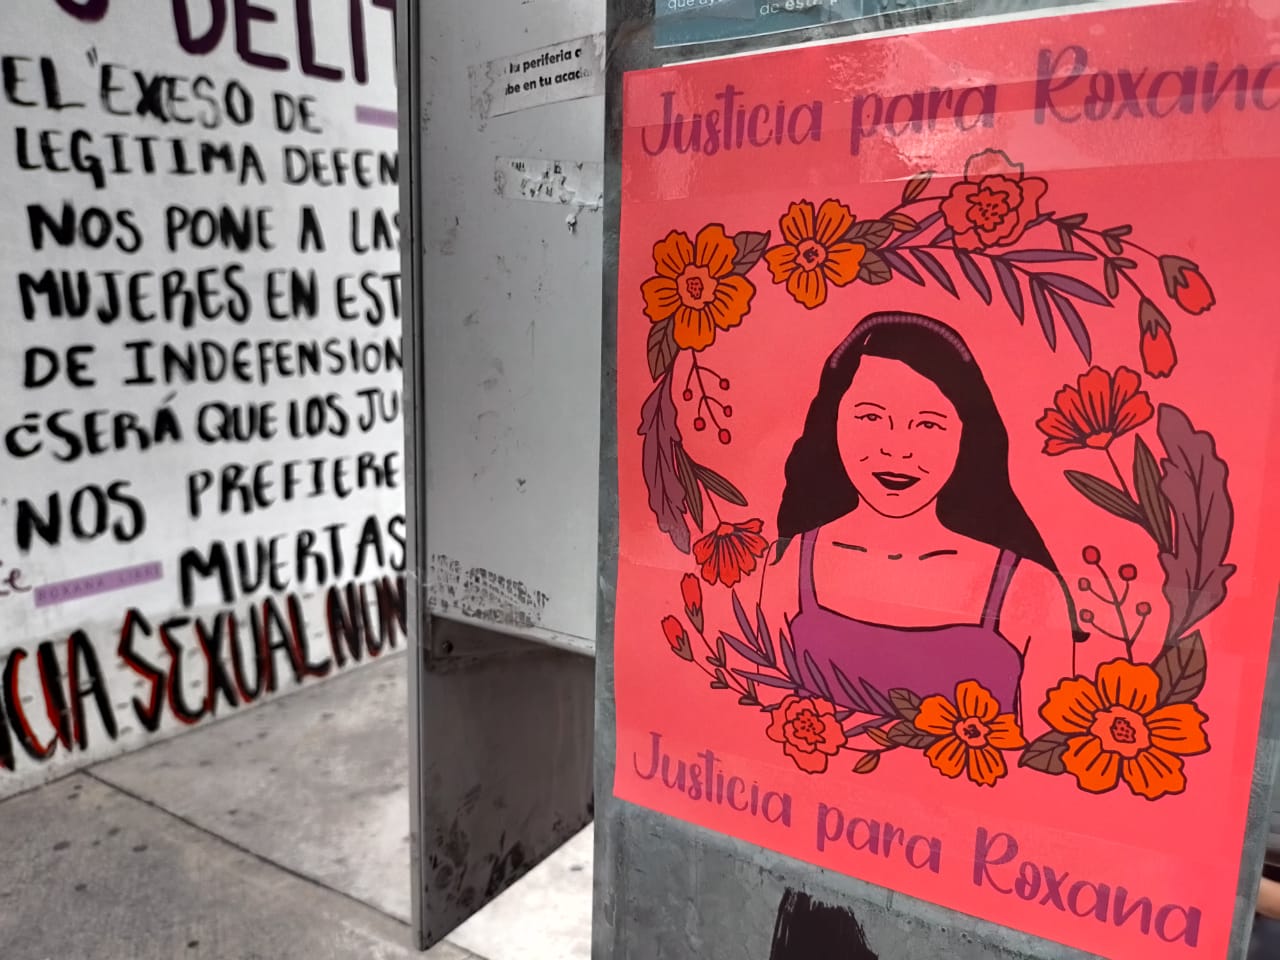 DELIT
EL "EXESO DE
LEGITIMA DEFEN
NOS PONE A LAS
MUJERES EN EST
DE INDEFENSION
¿SERÁ QUE LOS JU
NOS PREFIERE
MUERTAS
ROXANA LIBRE
CIA SEXUAL NUN
la periferia
be en tu acade
de
Justicia para Roxana
Justicia para Roxana